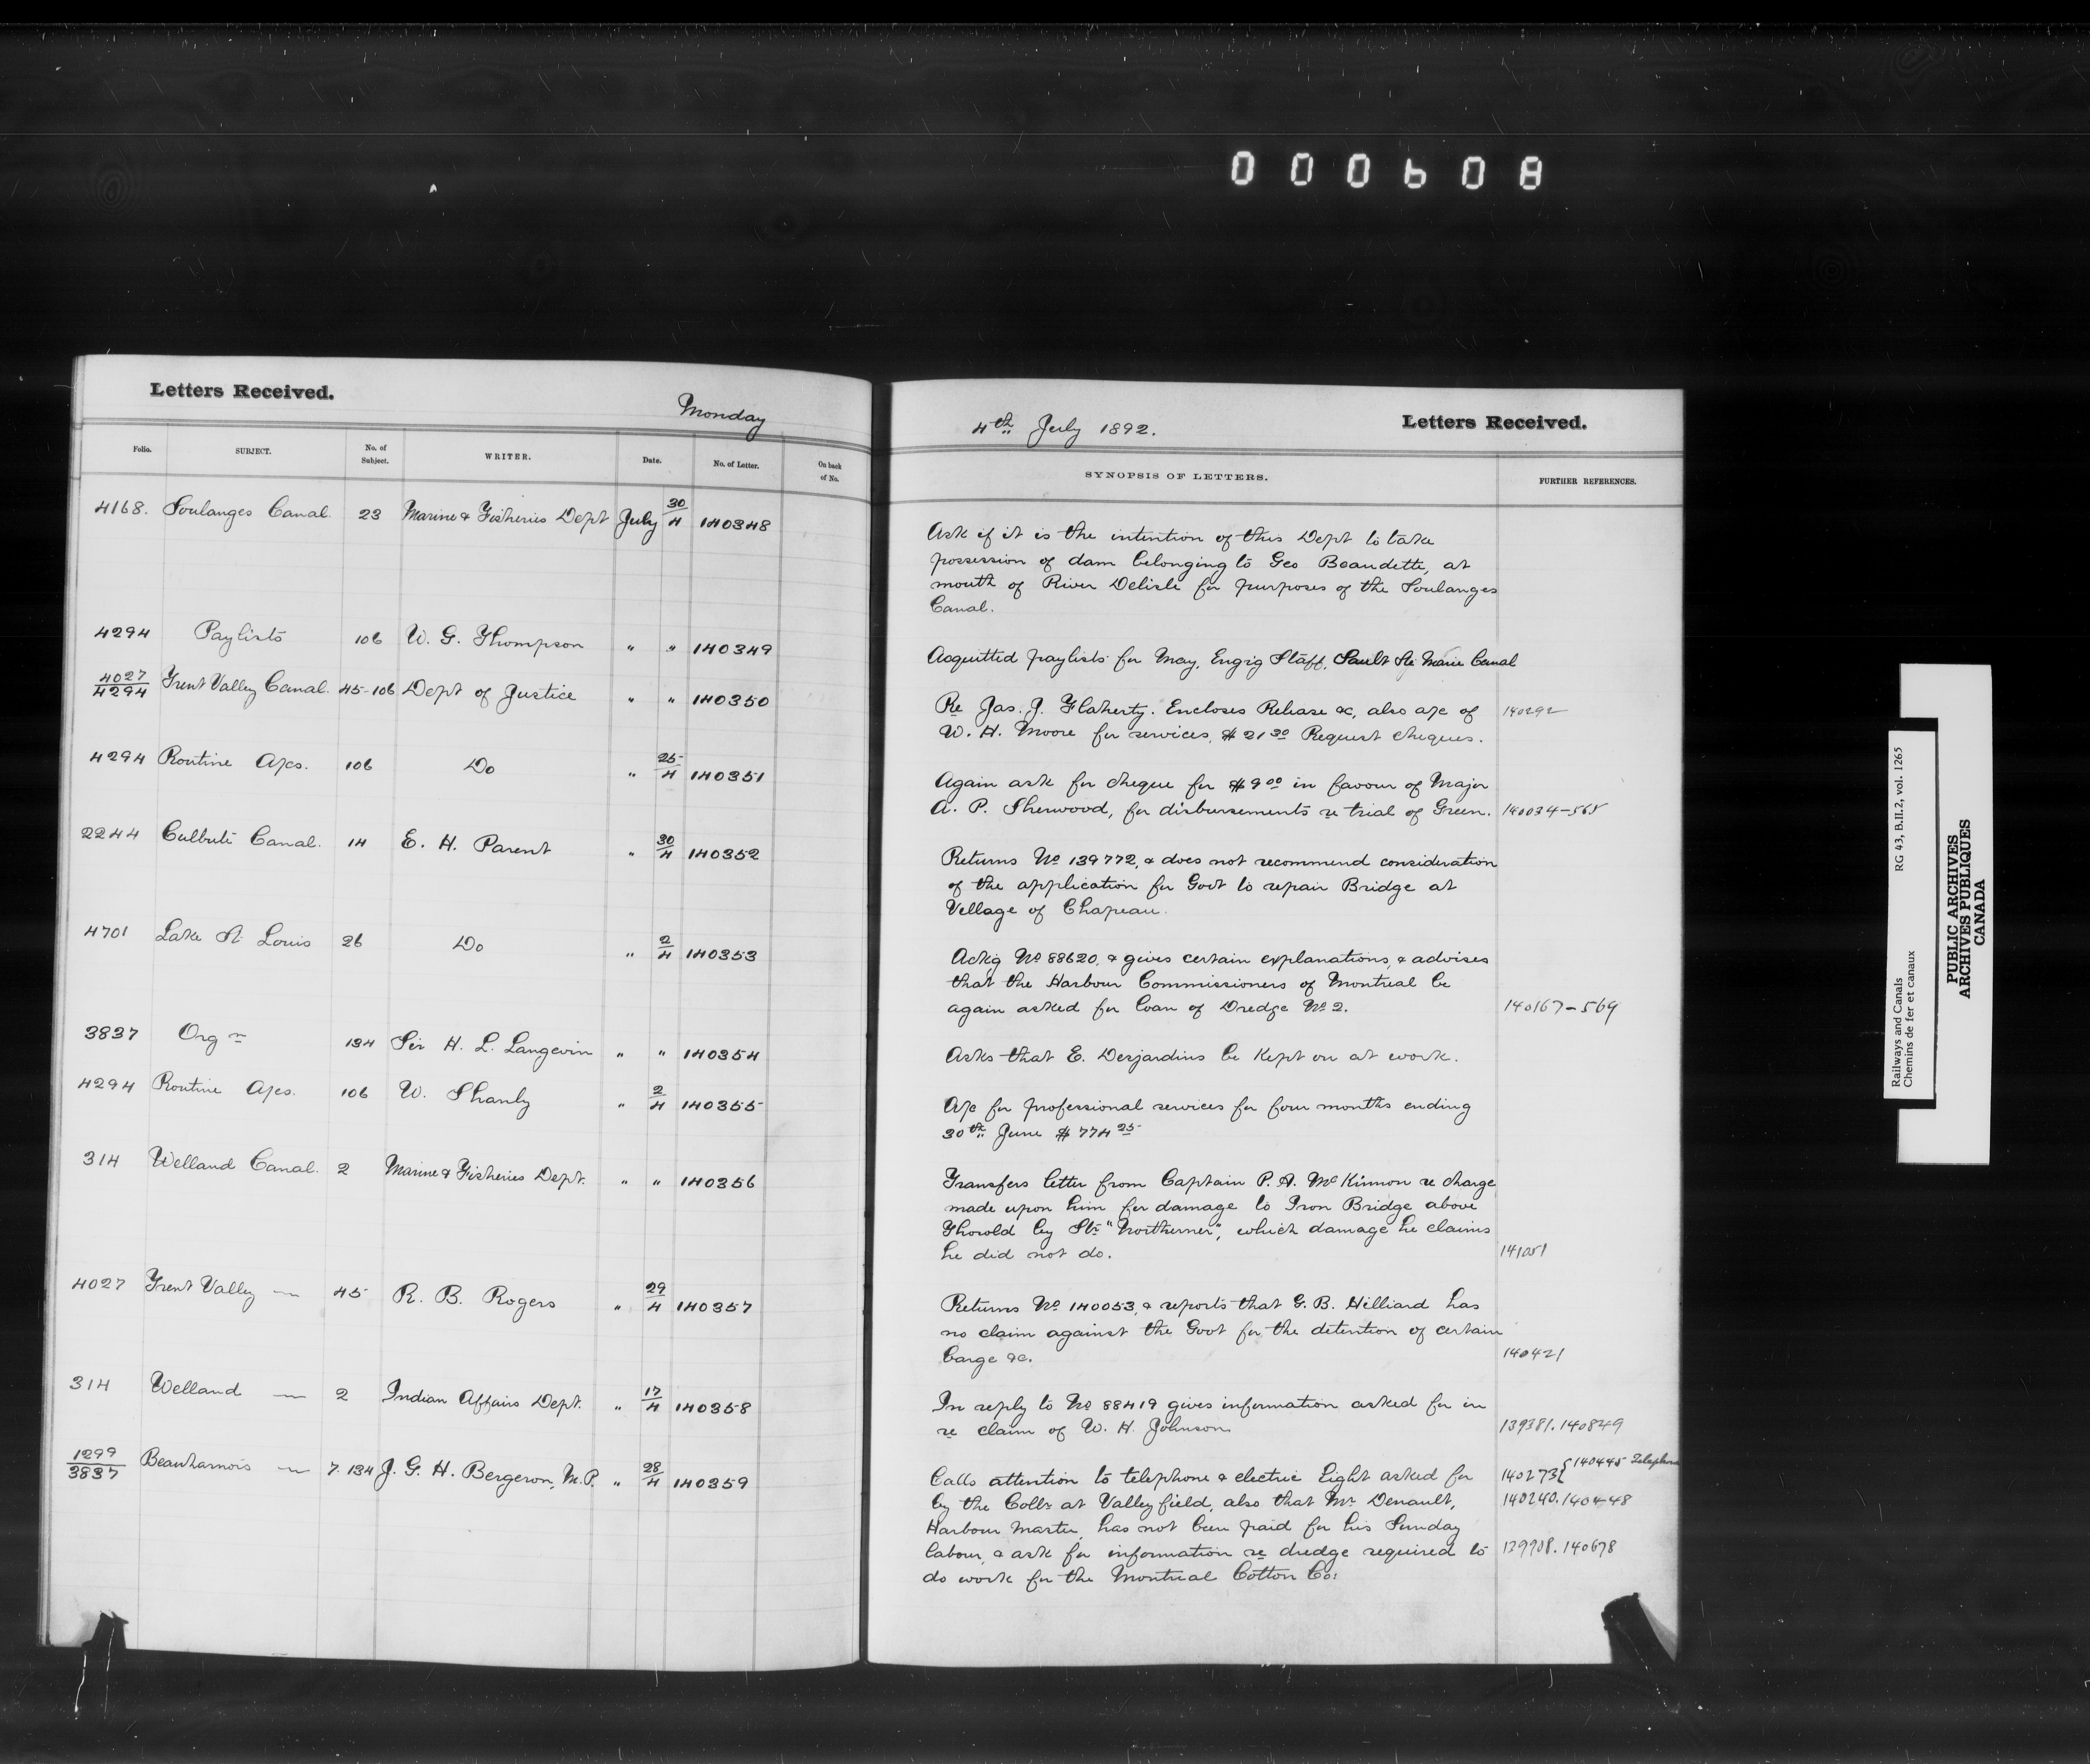 000608
Letters Received.
Monday
Folio. SUBJECT. No. of Subject. WRITER. Date. No. of Letter. On back of No.
4168. Soulanges Canal. 23 Marine & Fisheries Dept July 30/4 140348
4294 Paylists 106 W. G. Thompson " " 140349
4027/4294 Trent Valley Canal. 45-106 Dept of Justice " " 140350
4294 Routine A/cs. 106 Do " 25/4 140351
2244 Culbute Canal. 14 E. H. Parent " 30/4 140352
4701 Lake St Louis 26 Do " 2/4 140353
3837 Orgn 134 Sir H. L. Langevin " " 140354
4294 Routine A/cs. 106 W. Shanly " 2/4 140355
314 Welland Canal. 2 Marine & Fisheries Dept. " " 140356
4027 Trent Valley — 45 R. B. Rogers " 29/4 140357
314 Welland — 2 Indian Affairs Dept. " 17/4 140358
1299/3837 Beauharnois — 7. 134 J. G. H. Bergeron, M.P. " 28/4 140359
4th July 1892.
Letters Received.
SYNOPSIS OF LETTERS. FURTHER REFERENCES.
Ask if it is the intention of this Dept to take
possession of dam belonging to Geo Beaudette, at
mouth of River Delisle for purposes of the Soulanges
Canal.
Acquitted paylists for May, Engrg Staff, Sault Ste Marie Canal
Re Jas. J. Flaherty. Encloses Release &c, also a/c of 140292
W. H. Moore for services, $21 30 Request cheques.
Again ask for cheque for $9 00 in favour of Major
A. P. Sherwood, for disbursements re trial of Green. 140034-565
Returns No 139772, & does not recommend consideration
of the application for Govt to repair Bridge at
Village of Chapeau.
Ackg No 88620, & gives certain explanations, & advises
that the Harbour Commissioners of Montreal be
again asked for loan of Dredge No 2. 140167-569
Asks that E. Desjardins be kept on at work.
A/c for professional services for four months ending
30th June $774 25
Transfers letter from Captain P. A. McKinnon re charge
made upon him for damage to Iron Bridge above
Thorold by Str "Northerner", which damage he claims
he did not do. 141051
Returns No 140053, & reports that G. B. Hilliard has
no claim against the Govt for the detention of certain
barge &c. 140421
In reply to No 88419 gives information asked for in
re claim of W. H. Johnson 139381. 140849
Calls attention to telephone & electric light asked for 140273 { 140445 Telephone
by the Collr at Valleyfield, also that Mr Denault, 140240. 140448
Harbour Master, has not been paid for his Sunday
labour, & ask for information re dredge required to 139908. 140678
do work for the Montreal Cotton Co:
Railways and Canals RG 43, B.II.2, vol. 1265
Chemins de fer et canaux
PUBLIC ARCHIVES
ARCHIVES PUBLIQUES
CANADA